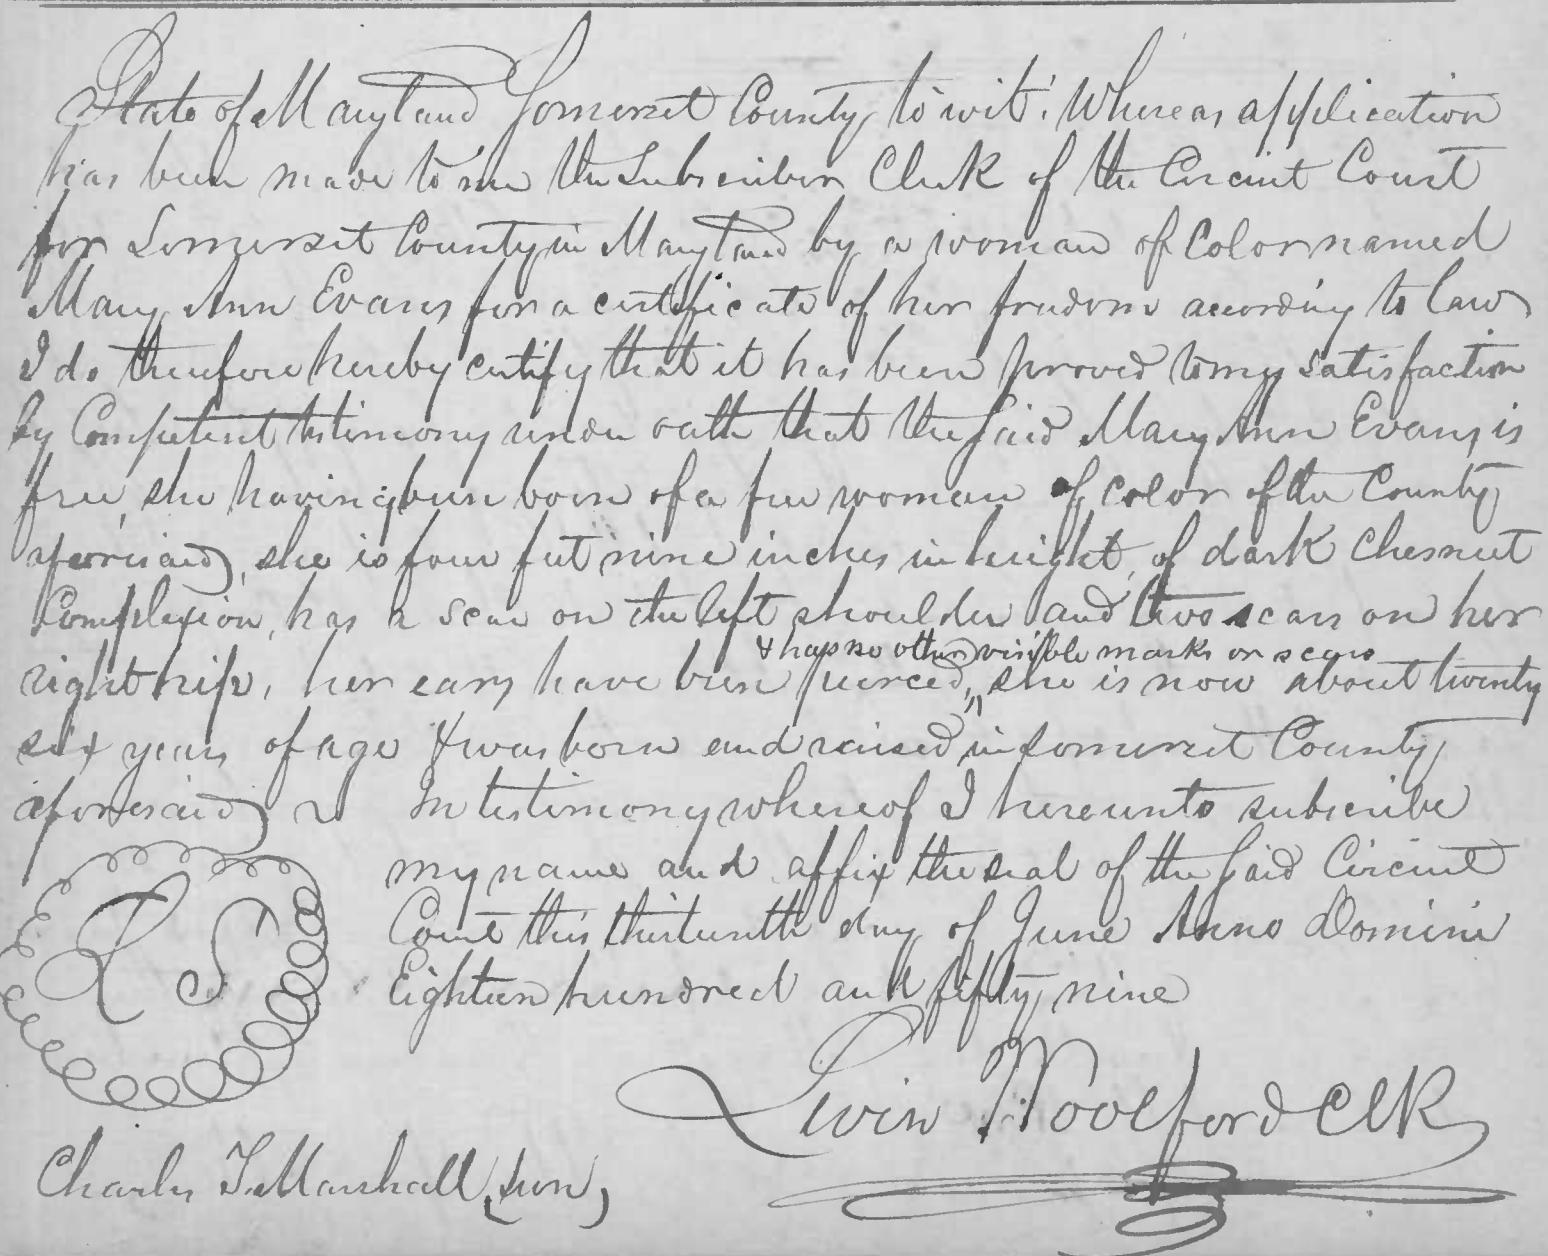 State of Maryland Somerset County, to wit: Whereas application
has been made to me the Subscriber Clerk of the Circuit Court
for Somerset County in Maryland by a woman of Color named
Mary Ann Evans for a certificate of her freedom according to law
I do therefore hereby certify that it has been proved to my satisfaction
by Competent testimony under oath that the said Mary Ann Evans, is
free, she having been born of a free woman of color of the County
aforesaid, she is four feet nine inches in height, of dark Chesnut
Complexion, has a scar on the left shoulder and two scars on her
& has no other visible marks or scars
right hip, her ears have been pierced, she is now about twenty
six years of age & was born and raised in Somerset County
aforesaid In testimony whereof I hereunto subscribe
my name and affix the seal of the said Circuit
Court this thirteenth day of June Anno Domini
L S
Eighteen hundred and fifty nine
Levin Woolford Clk
Charles T. Marshall